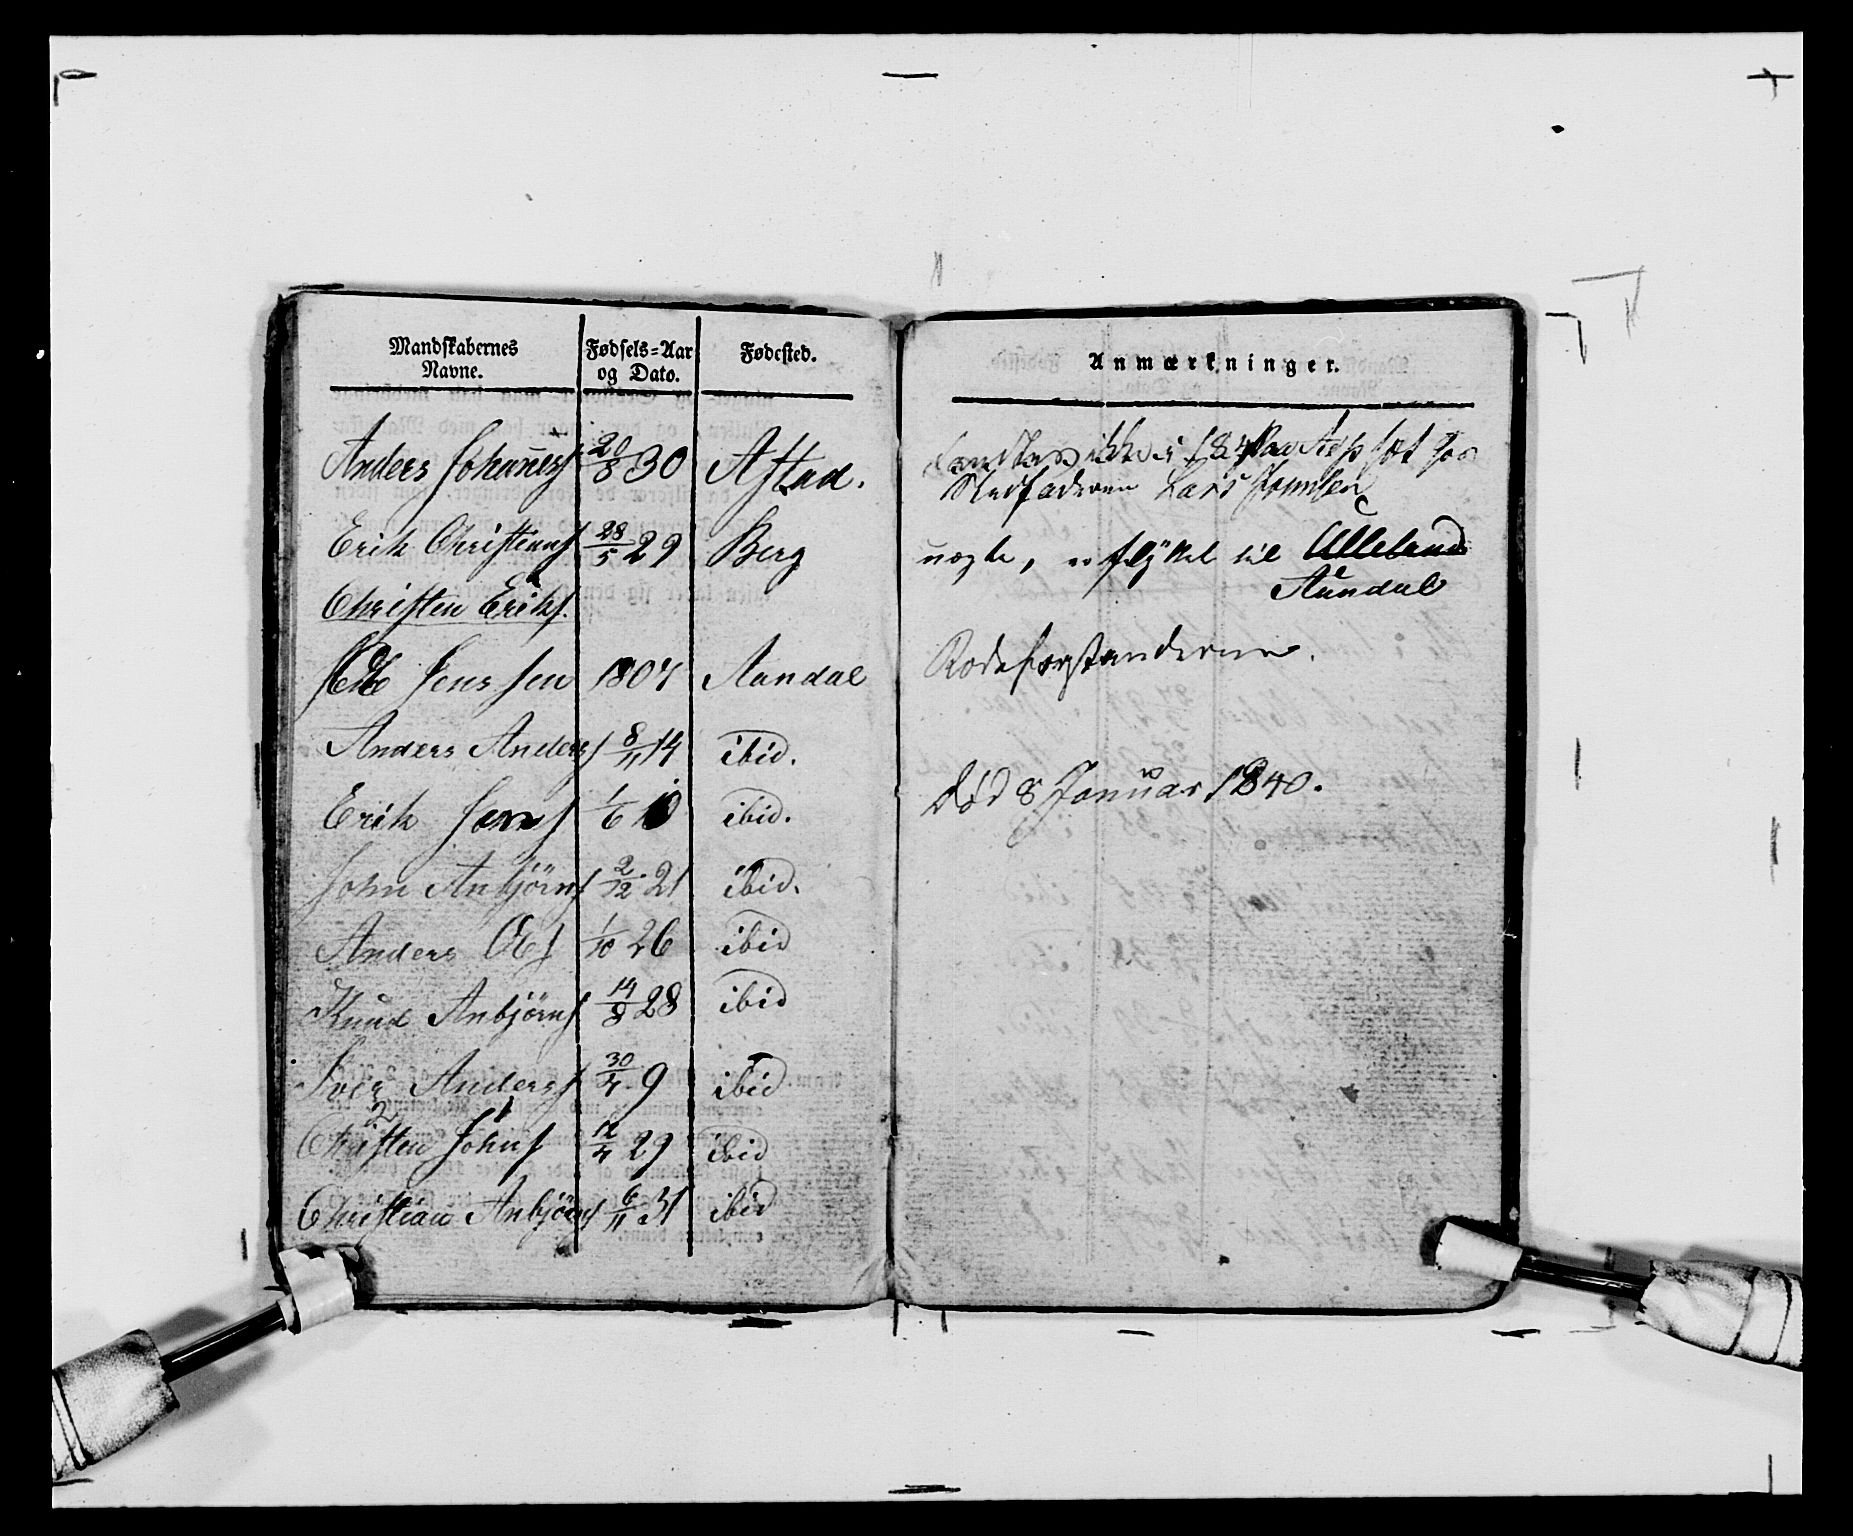 Mandskabernes
Navne.
Fødsels-Aar
og Dato.
Fødested.
Anders Johanness 20/8 30 Aftad.
Erik Christians 28/5 29 Berg
Christen Eriks.
Ole Jenssen 1807 Aandal
Anders Anders 8/11 14 ibid.
Erik Jens 1/6 10 ibid.
John Anbjørns 2/12 21 ibid.
Anders Ols 1/10 26 ibid
Knud Anbjørns 14/8 28 ibid
Iver Anders 30/4 9 ibid
Christen Johns 12/4 29 ibid
Christian Anbjørns 6/11 31 ibid
Anmærkninger.
ikke i
Stedfaderen Lars
nogle, er flyttet til Ulleland
Aandal
Rodeforstanderen.
død 8 Januar 1840.